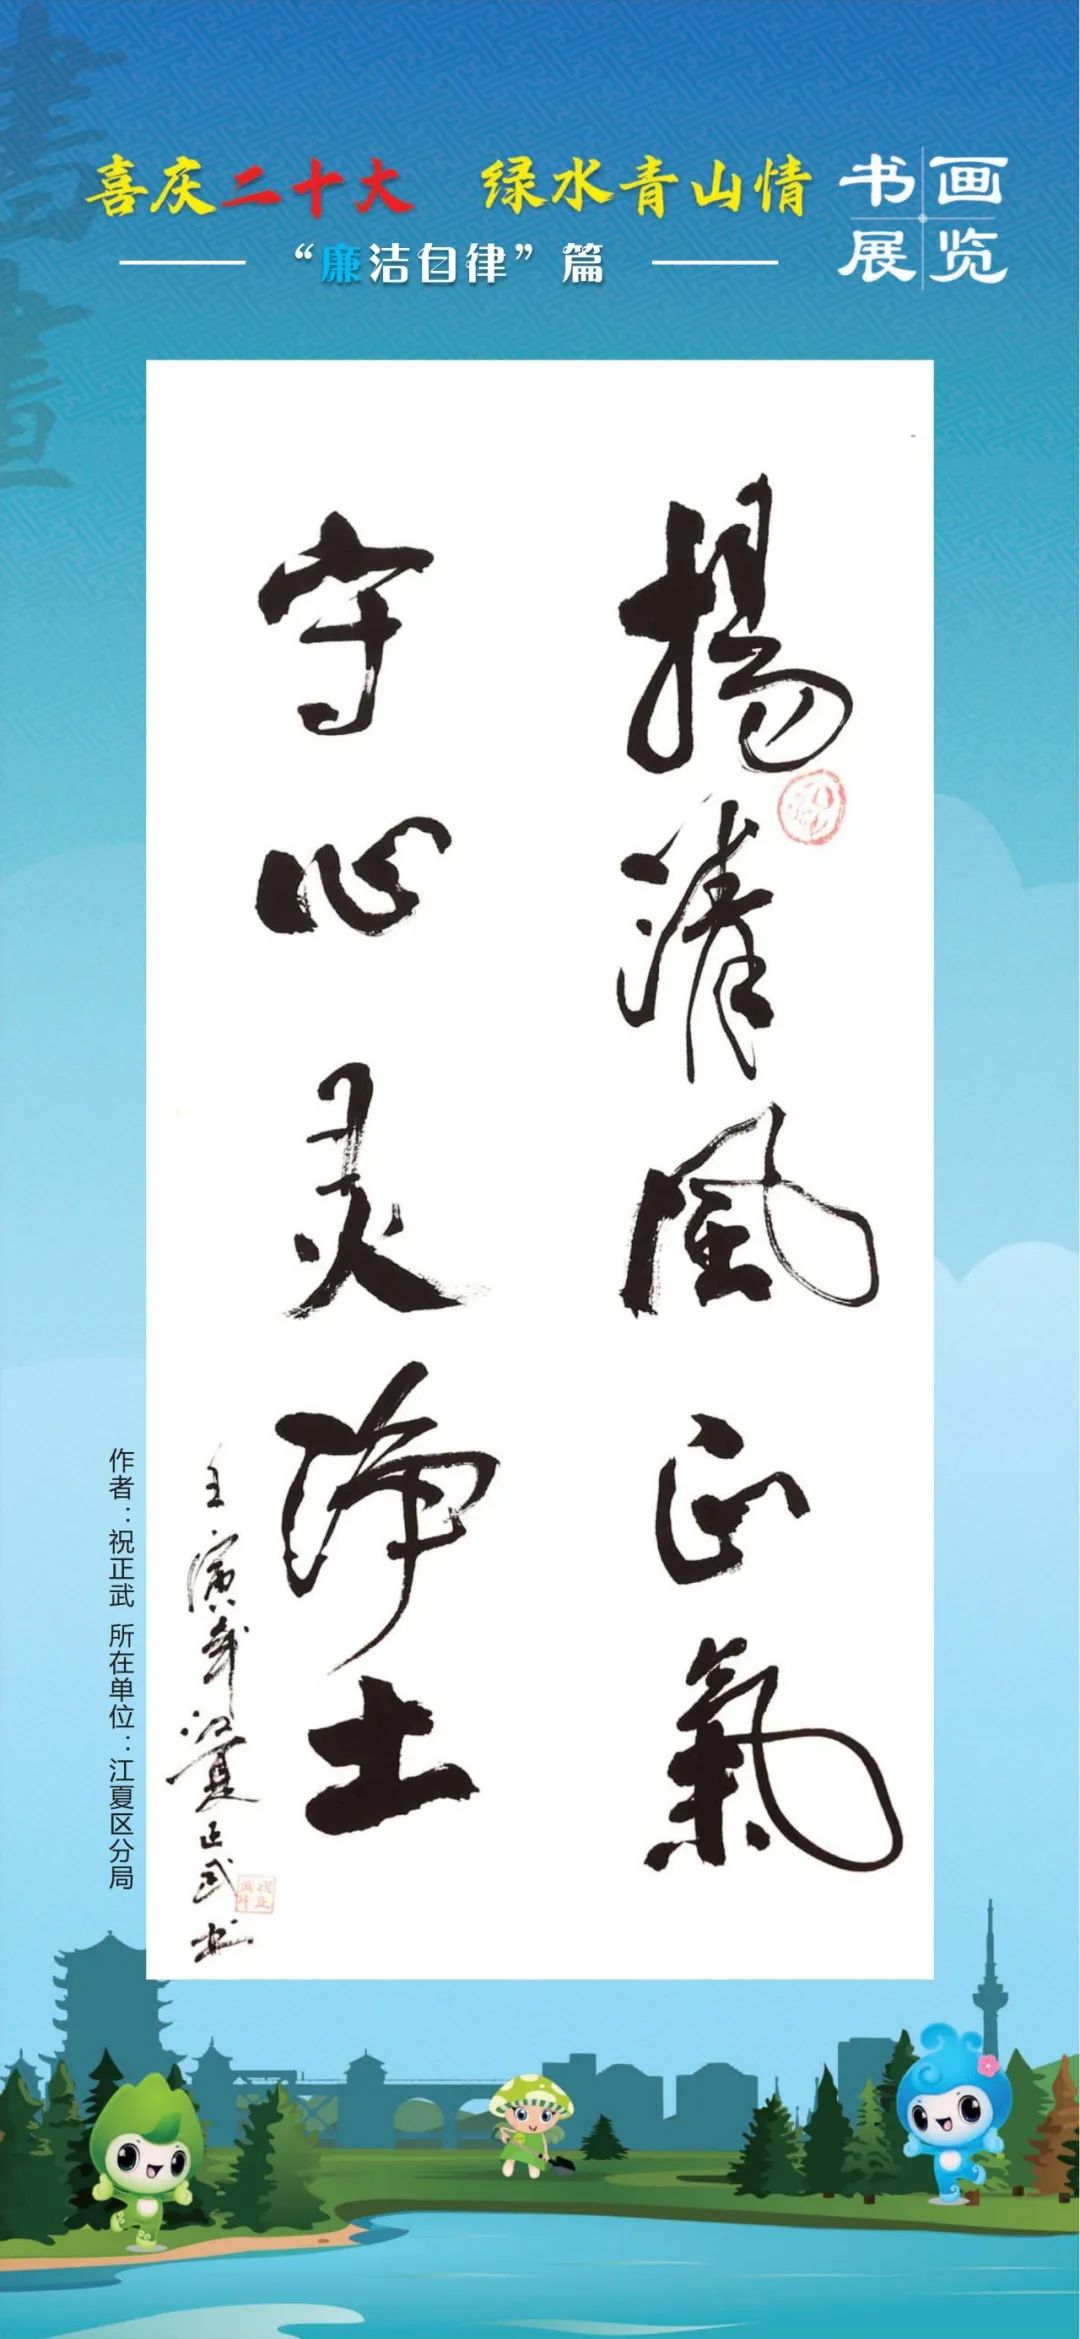 喜庆二十大 绿水青山情
书画
展览
“廉洁自律”篇
書畫
揚清風正氣
守心灵净土
壬寅年江夏正武书
作者：祝正武 所在单位：江夏区分局